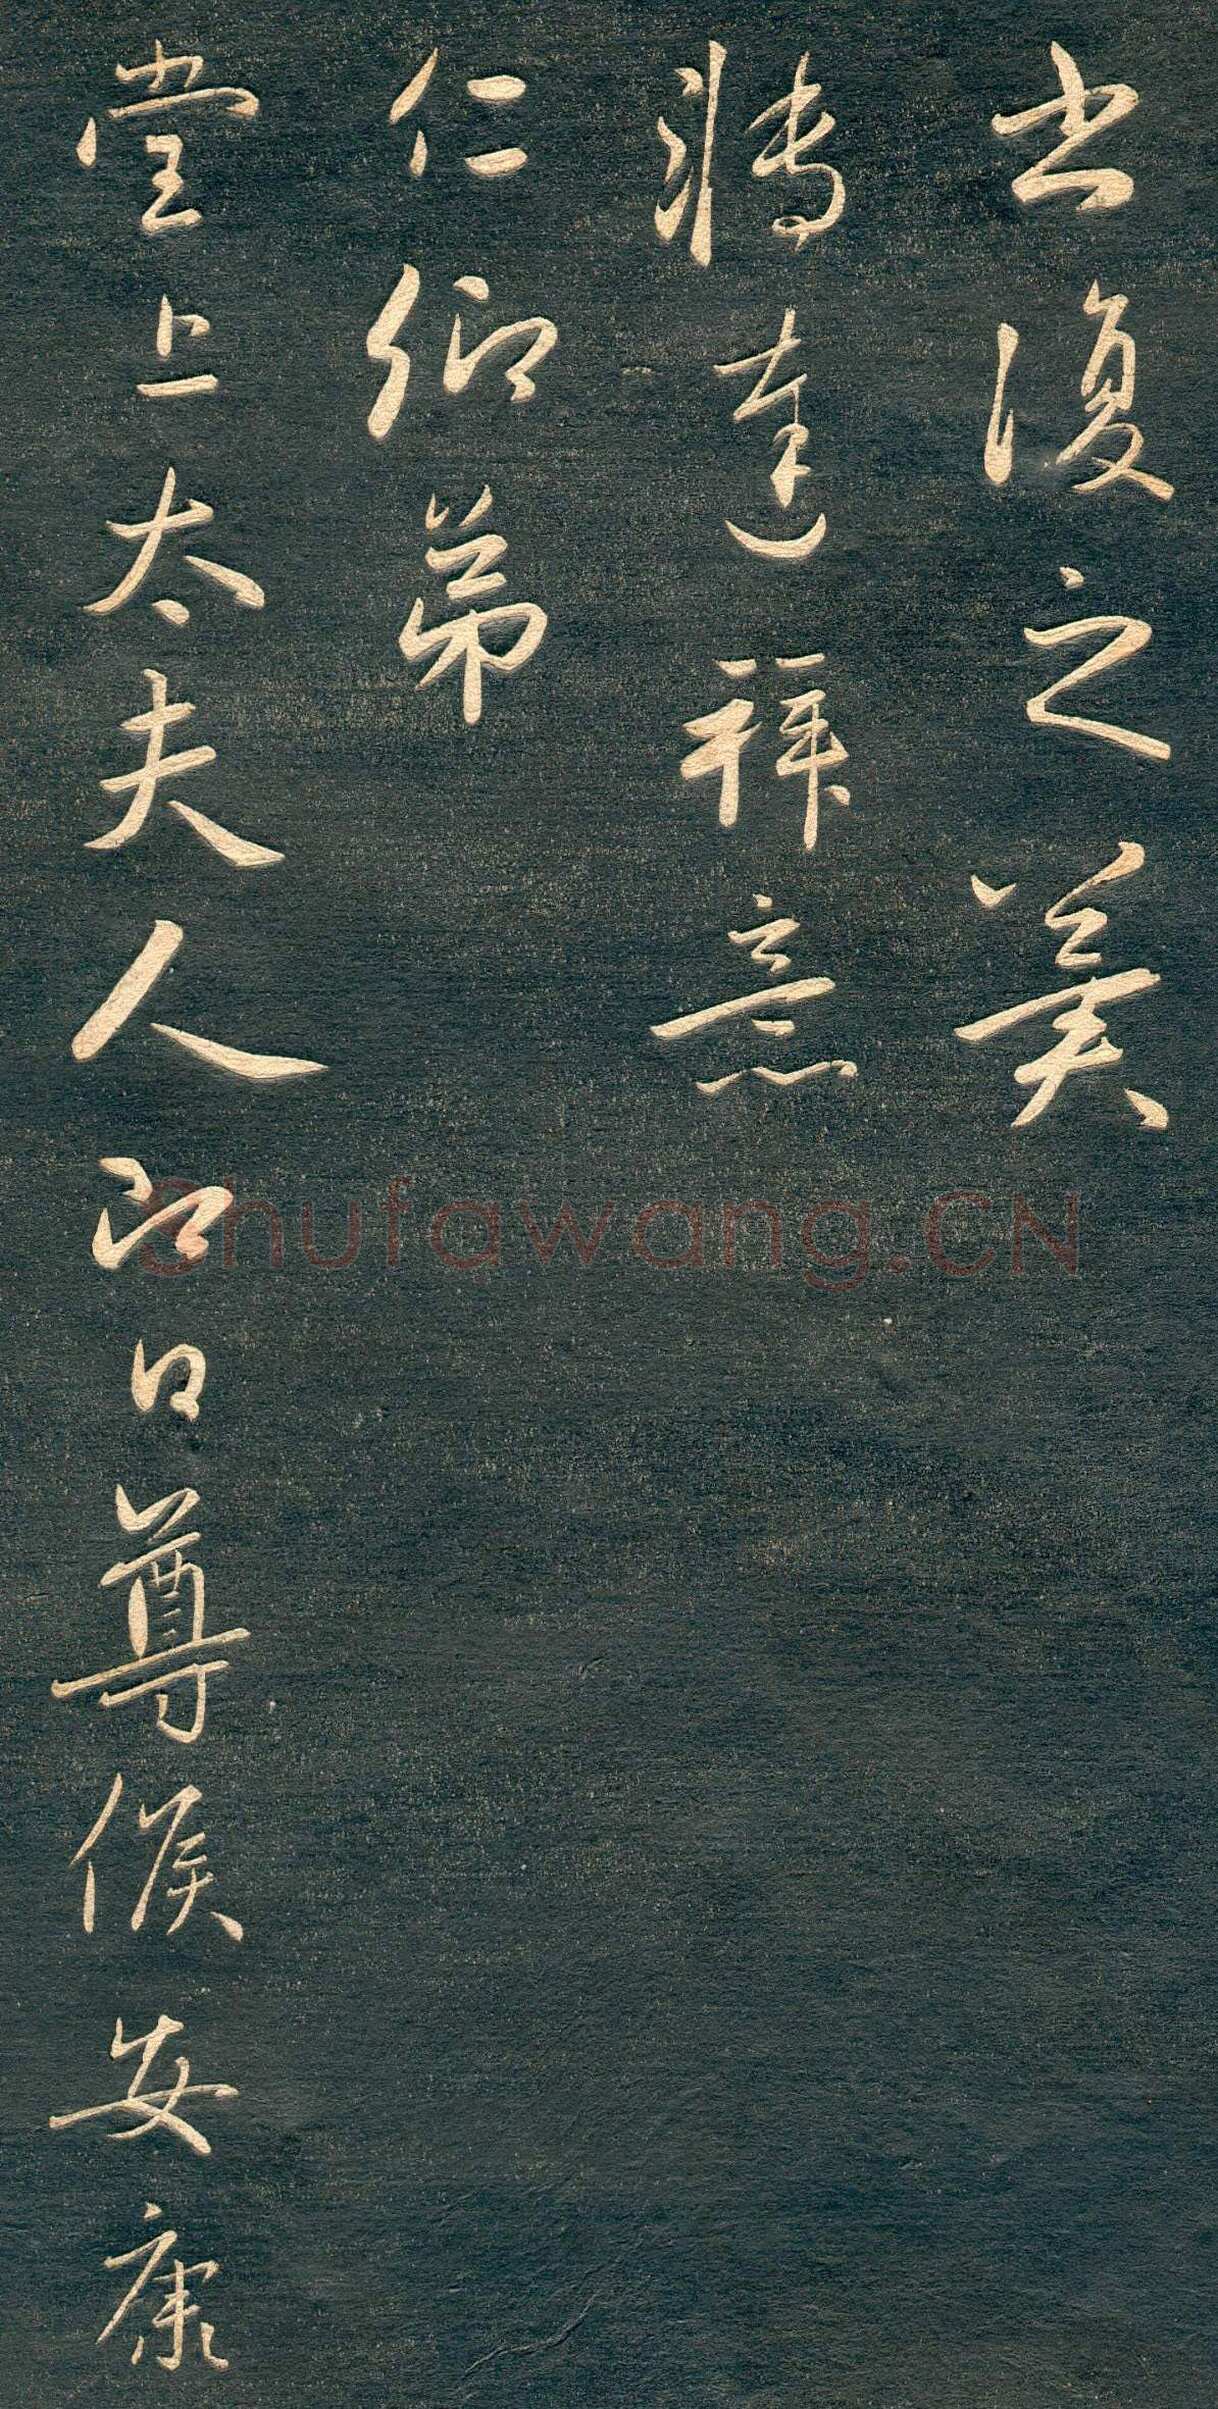 出復之美
將達祥意
仁卿弟
堂上太夫人即日尊候安康
Shufawang.CN